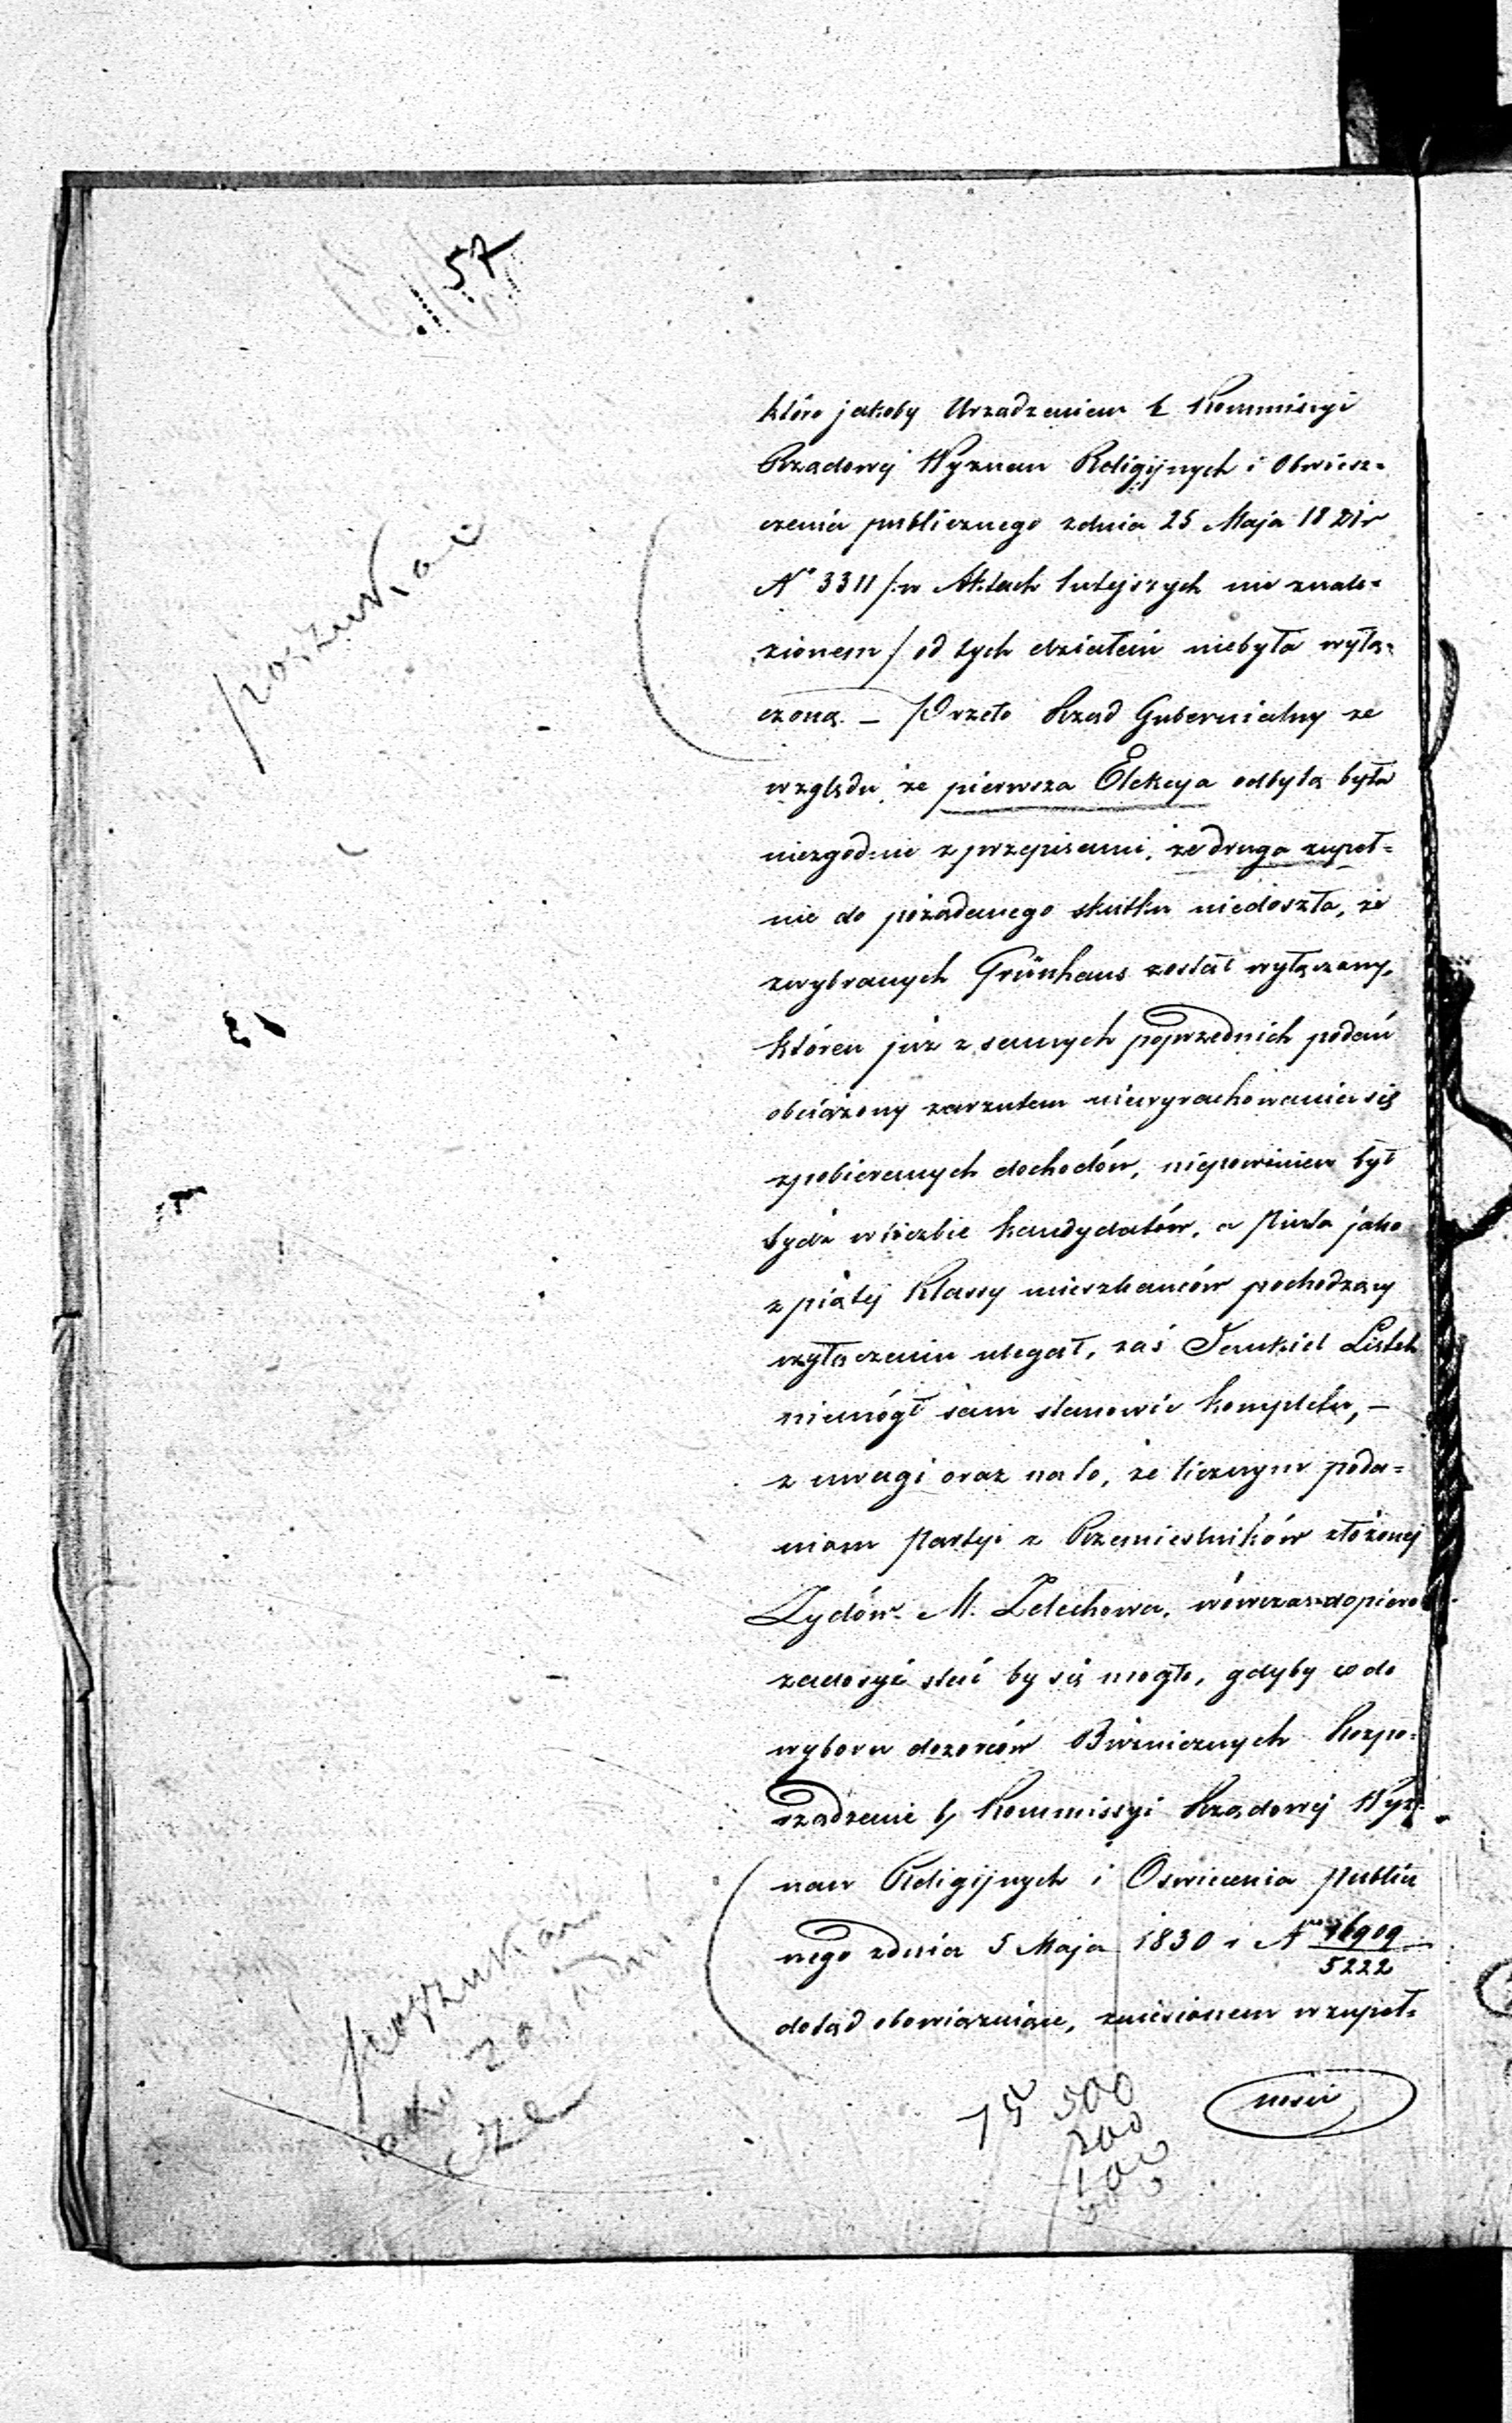 57
która jakoby Urządzeniem b. Kommissyi
Rządowej Wyznań Religijnych i Oświe-
cenia publicznego zdnia 25 Maja 1821 r
Nº 3311 /:w Aktach tutejszych nie znale-
zionem/ od tych działań niebyła wyłą-
czoną. – Przeto Rząd Gubernialny ze
względu że pierwsza Elekcya odbytą była
niezgodnie z przepisami, że druga zupeł=
nie do pożądanego skutku niedoszła, że
zwybranych Grünhaus został wyłączony,
któren już z samych poprzednich podań
obciążony zarzutem niewyrachowania się
zpobieranych dochodów, niepowinien był
bydź w liczbie kandydatów, a jako
z piątej klassy mieszkańców pochodzący
wyłączeniu ulegał, zaś Jankiel Listek
niemógł sam stanowić kompletu, –
z uwagi oraz na to, że licznym poda=
niom Partyi z Rzemieślników złożonej
Żydów M. Żelechowa, wówczas dopiero
zadosyć stać by się mogło, gdyby co do
wyboru dozorców Bóżniczych Rozpo-
rządzenie b. Kommissyi Rządowej Wyz-
nań Religijnych i Oświecenia Publicz
nego zdnia 5 Maja 1830 r Nº 16909
5222
dotąd obowiązujące, zniesionem w zupeł-
ności
poszukać
poszukać
jako zasadni
cze
75 500
200
100